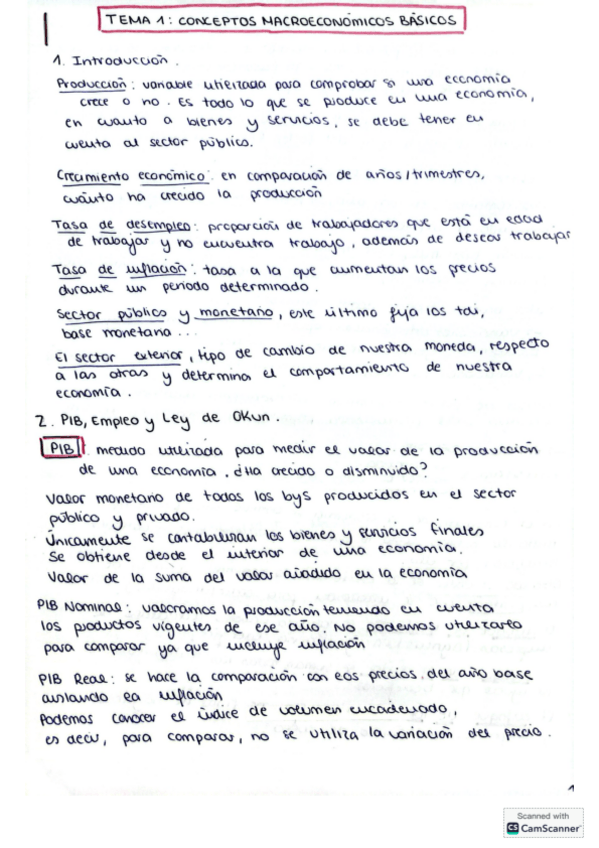 TEMA 1: CONCEPTOS MACROECONÓMICOS BÁSICOS
1. Introducción.
Producción: variable utilizada para comprobar si una economía
crece o no. Es todo lo que se produce en una economía,
en cuanto a bienes y servicios, se debe tener en
cuenta al sector público.
Crecimiento económico: en comparación de años/trimestres,
cuánto ha crecido la producción
Tasa de desempleo: proporción de trabajadores que está en edad
de trabajar y no encuentra trabajo, además de desear trabajar
Tasa de inflación: tasa a la que aumentan los precios
durante un periodo determinado.
Sector público y monetario, este último fija los toi,
base monetaria...
El sector exterior, tipo de cambio de nuestra moneda, respecto
a las otras y determina el comportamiento de nuestra
economía.
2. PIB, Empleo y Ley de Okun.
PIB: medida utilizada para medir el valor de la producción
de una economía. ¿Ha crecido o disminuido?
Valor monetario de todos los bys producidos en el sector
público y privado.
Únicamente se contabilizan los bienes y servicios finales
Se obtiene desde el interior de una economía.
Valor de la suma del valor añadido en la economía
PIB Nominal: valoramos la producción teniendo en cuenta
los productos vigentes de ese año. No podemos utilizarlo
para comparar ya que incluye inflación
PIB Real: se hace la comparación con los precios del año base
aislando la inflación
Podemos conocer el índice de volumen encadenado,
es decir, para comparar, no se utiliza la variación del precio.
1
Scanned with
CS CamScanner